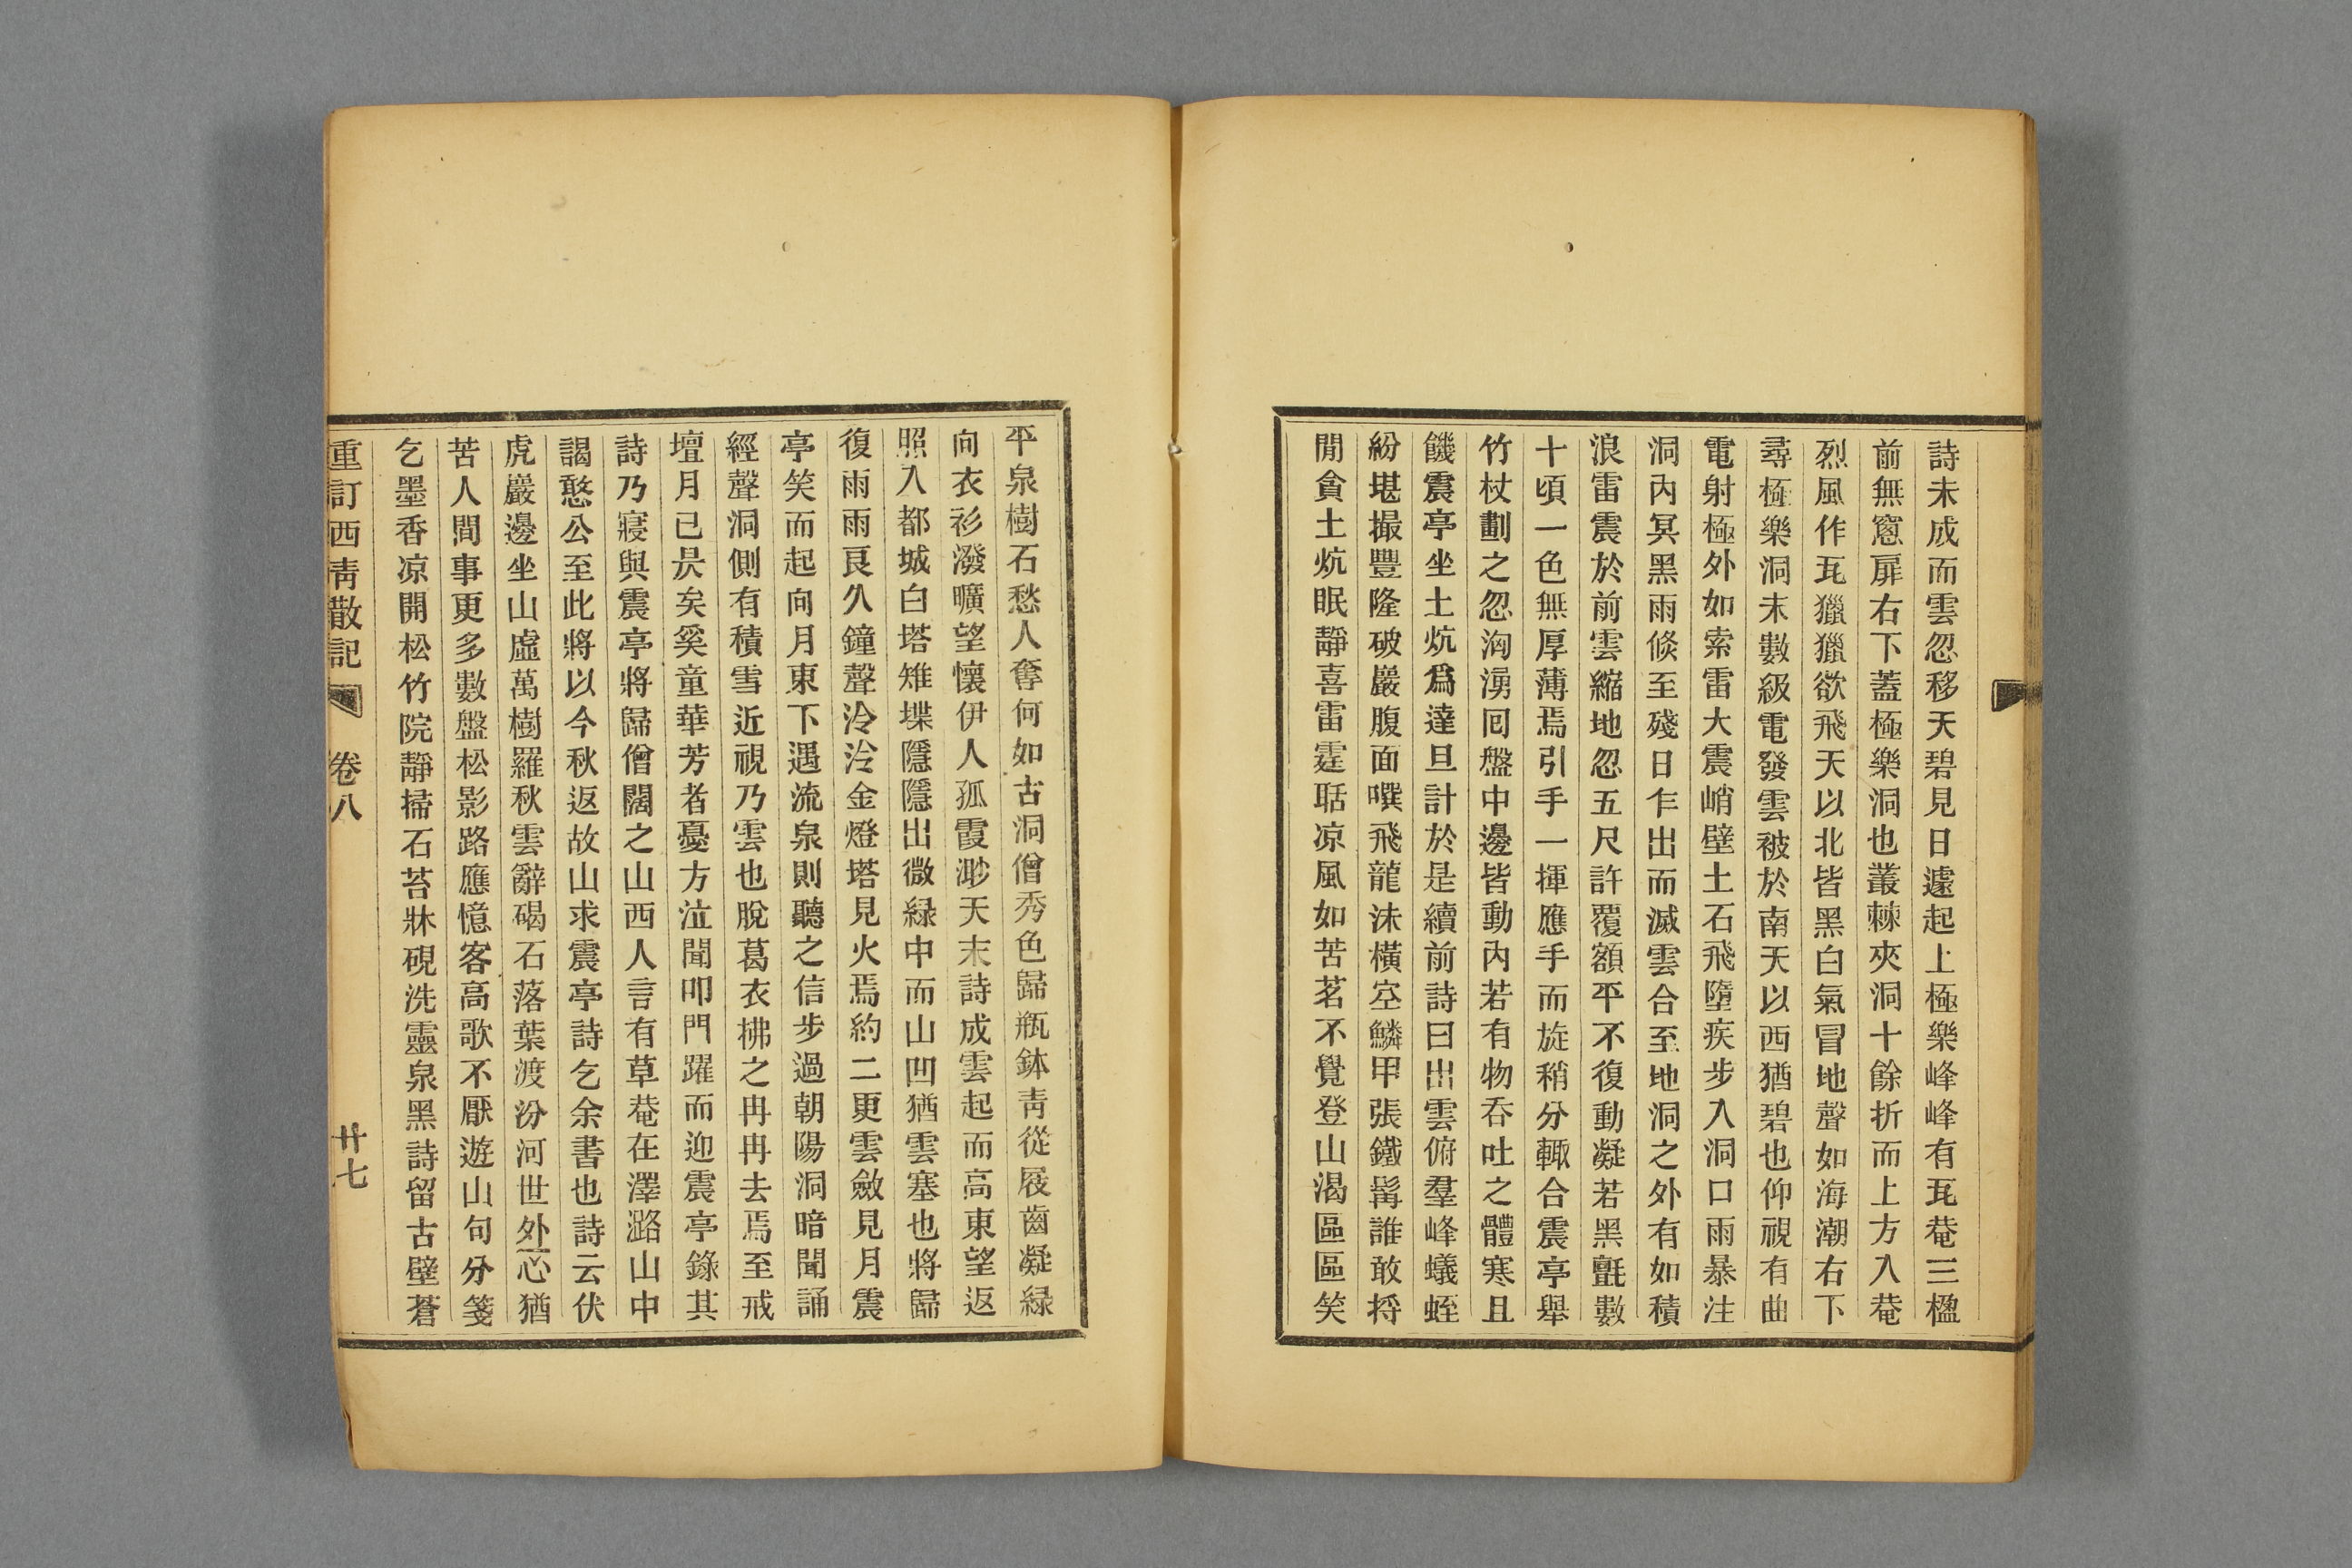 詩未成而雲忽移天碧見日遽起上極樂峰峰有瓦菴三楹
前無窻扉右下蓋極樂洞也叢棘夾洞十餘折而上方入菴
烈風作瓦獵獵欲飛天以北皆黑白氣冒地聲如海潮右下
尋極樂洞未數級電發雲被於南天以西猶碧也仰視有曲
電射極外如索雷大震峭壁土石飛墮疾步入洞口雨暴注
洞內冥黑雨倏至殘日乍出而滅雲合至地洞之外有如積
浪雷震於前雲縮地忽五尺許覆額平不復動凝若黑氈數
十頃一色無厚薄焉引手一揮應手而旋稍分輙合震亭舉
竹杖劃之忽洶湧囘盤中邊皆動內若有物吞吐之體寒且
饑震亭坐土炕爲達旦計於是續前詩曰出雲俯羣峰蟻蛭
紛堪撮豐隆破巖腹面噀飛龍沫橫空鱗甲張鐵髯誰敢捋
閒貪土炕眠靜喜雷霆聒凉風如苦茗不覺登山渴區區笑
平泉樹石愁人奪何如古洞僧秀色歸瓶鉢靑從屐齒凝綠
向衣衫潑曠望懷伊人孤霞渺天末詩成雲起而高東望返
照入都城白塔雉堞隱隱出微綠中而山凹猶雲塞也將歸
復雨雨艮久鐘聲泠泠金燈塔見火焉約二更雲斂見月震
亭笑而起向月東下遇流泉則聽之信步過朝陽洞暗聞誦
經聲洞側有積雪近視乃雲也脫葛衣拂之冉冉去焉至戒
壇月已昃矣奚童華芳者憂方泣聞叩門躍而迎震亭錄其
詩乃寢與震亭將歸僧闊之山西人言有草菴在澤潞山中
謁憨公至此將以今秋返故山求震亭詩乞余書也詩云伏
虎巖邊坐山虛萬樹羅秋雲辭碣石落葉渡汾河世外心猶
苦人間事更多數盤松影路應憶客高歌不厭遊山句分箋
乞墨香凉開松竹院靜掃石苔牀硯洗靈泉黑詩留古壁蒼
重訂西靑散記 卷八 廿七